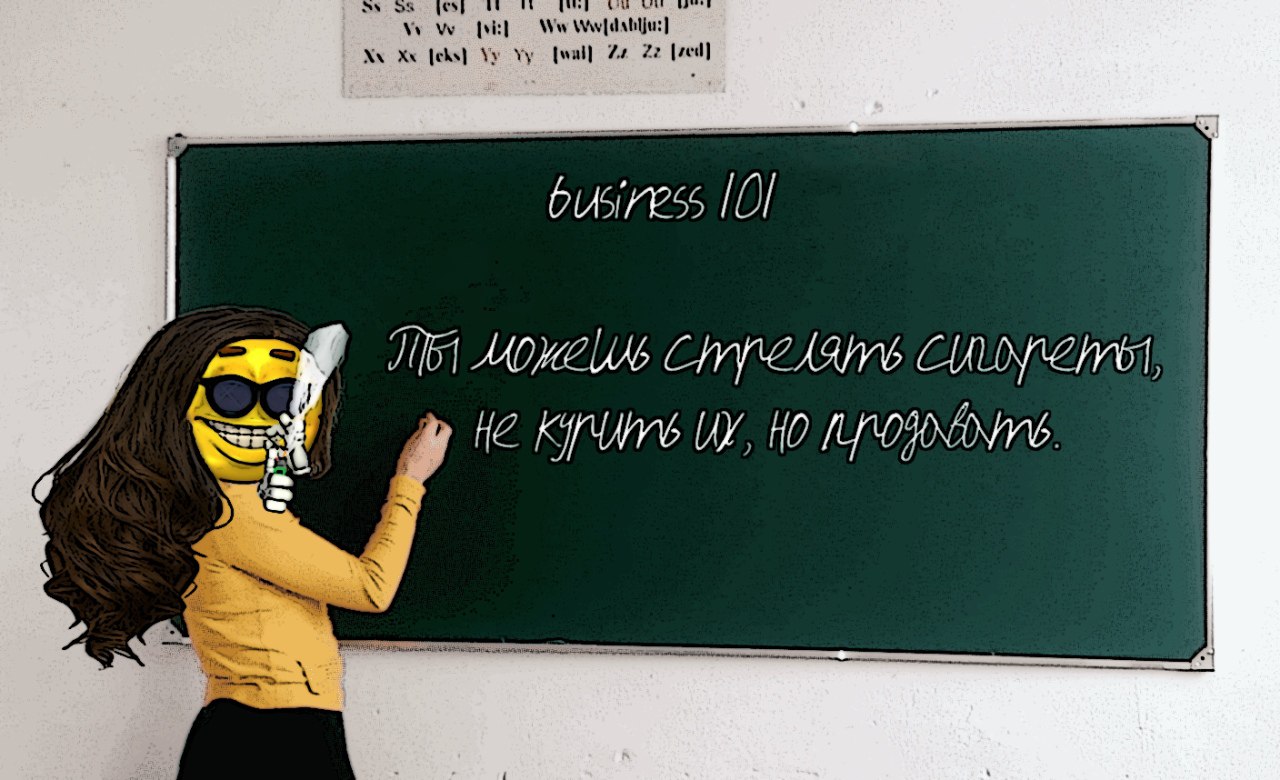 Ss Ss [es] Tt Tt [ti:] Uu Uu [ju:]
Vv Vv [vi:] Ww Ww[dablju:]
Xx Xx [eks] Yy Yy [wai] Zz Zz [zed]
business 101
Ты можешь стрелять сигареты,
не курить их, но продавать.